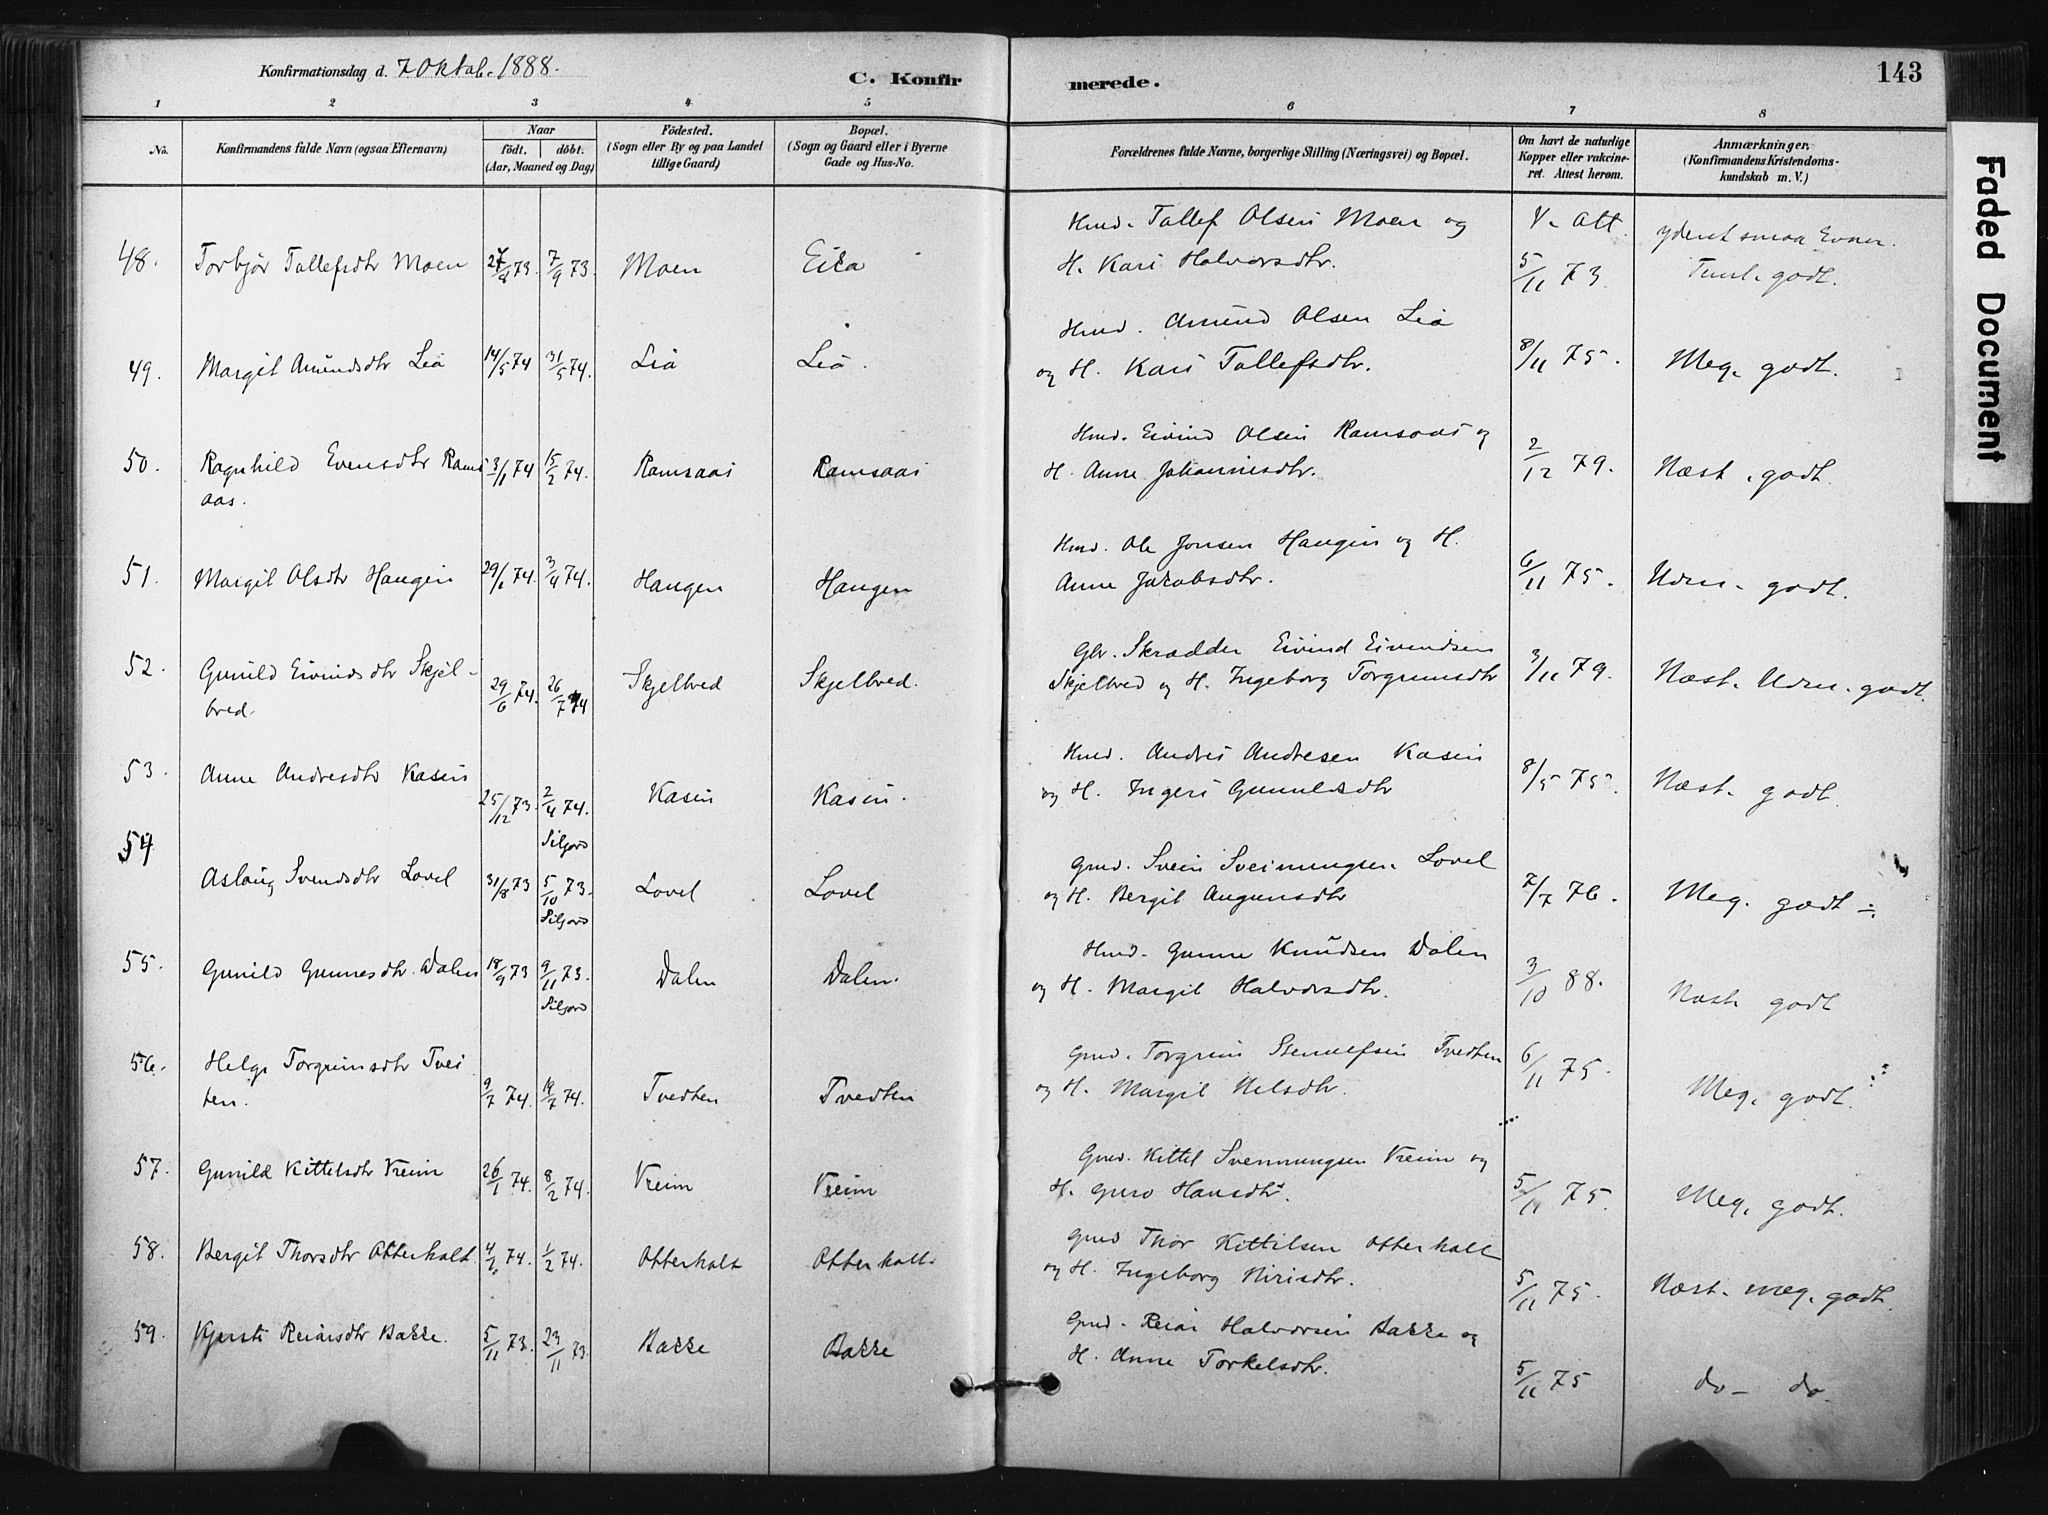 Konfirmationsdag d. 7 Oktob. 1888.
C. Konfir
merede.
143
1
2
3
4
5
6
7
8
No.
Konfirmandens fulde Navn (ogsaa Efternavn)
Naar
födt. döbt.
(Aar, Maaned og Dag)
Födested.
(Sogn eller By og paa Landet
tillige Gaard)
Bopæl.
(Sogn og Gaard eller i Byerne
Gade og Hus-No.
Forældrenes fulde Navne, borgerlige Stilling (Næringsvei) og Bopæl.
Om havt de naturlige
Kopper eller vakcine-
ret. Attest herom.
Anmærkninger.
(Konfirmandens Kristendoms-
kundskab m. V.)
Faded Document
48. Torbjør Tallefsdtr Moen 27/8 73. 7/9 73. Moen Eika
Hmd. Tallef Olsen Moen og
H. Kari Halvorsdtr.
V. Att.
5/11 73.
yderst smaa Evner.
Teml. godt.
49. Margit Amundsdtr Lia 14/5 74 31/5 74. Lia Lia.
Hmd. Amund Olsen Lia
og H. Kari Tallefsdtr.
8/11 75. Meg. godt.
50. Ragnhild Evensdtr Rams
aas.
3/1 74 15/2 74. Ramsaas Ramsaas
Hmd. Eivind Olsen Ramsaas og
H. Anne Johannesdtr.
2/12 79. Næst. godt.
51. Margit Olsdtr Haugen 29/1 74. 3/4 74. Haugen Haugen
Hmd. Ole Jonsen Haugen og H.
Anne Jakobsdtr.
6/11 75. Udm. godt.
52. Gunild Eivindsdtr Skjel-
bred.
29/6 74. 26/7 74 Skjelbred Skjelbred.
Gbr. Skrædder Eivind Eivindsen
Skjelbred og H. Ingeborg Torgrimsdtr
3/11 79. Næst. Udm. godt.
53. Anne Andresdtr Kasin
25/12 73. 2/4 74. Kasin Kasin.
Siljord
Hmd. Andres Andresen Kasin
og H. Ingeri Gunuldsdtr
8/5 75. Næst. godt.
54 Aslaug Svendsdtr Lovel 31/8 73 5/10 73. Lovel Lovel
Siljord
Gmd. Svein Sveinungsen Lovel
og H. Bergit Augunsdtr
7/7 76. Meg. godt ÷.
55. Gunild Gunnesdtr. Dalen 18/9 73 9/11 73. Dalen Dalen.
Siljord
Hmd. Gunne Knudsen Dalen
og H. Margit Halvorsdtr.
3/10 88. Næst. godt
56. Helge Torgrimsdtr Tvei
ten.
9/7 74. 19/7 74. Tvedten Tvedten
Gmd. Torgrim Stenulfsen Tvedten
og H. Margit Nilsdtr.
6/11 75. Meg. godt.
57. Gunild Kittelsdtr Vreim 26/1 74. 8/2 74. Vreim Vreim
Gmd. Kittel Svennungsen Vreim og
H. Guro Hansdtr.
5/11 75. Meg. godt.
58. Bergit Thorsdtr Otterholt. 4/1 74. 1/2 74. Otterholt Otterholt.
Gmd Thor Kittilsen Otterholt
og H. Ingeborg Nirisdtr.
5/11 75. Næst. meg. godt.
59. Kjersti Reiarsdtr Bakke. 5/11 73. 23/11 73. Bakke Bakke
Gmd. Reiar Halvorsen Bakke og
H. Anne Torkelsdtr.
5/11 75 do - do.